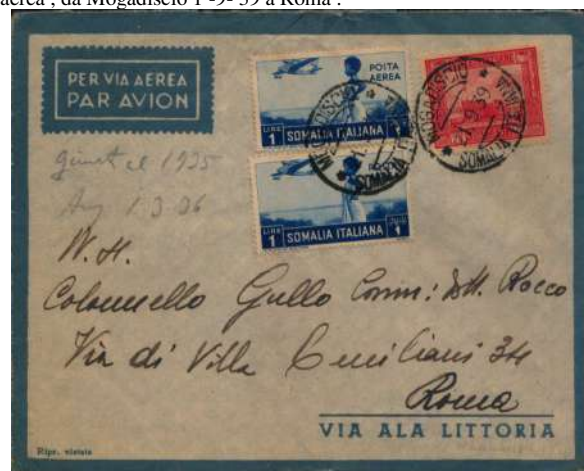 aerea , da Mogadiscio 1 -9- 39 a Roma .
PER VIA AEREA
PAR AVION
POSTA
AEREA
LIRE
1 SOMALIA ITALIANA 1
LIRE
1 SOMALIA ITALIANA 1
MOGADISCIO
1.9.39
SOMALIA
1925
1.3.36
Colonnello Gullo Comm: Dott. Rocco
Via di Villa 34
Roma
VIA ALA LITTORIA
Ripr. vietata